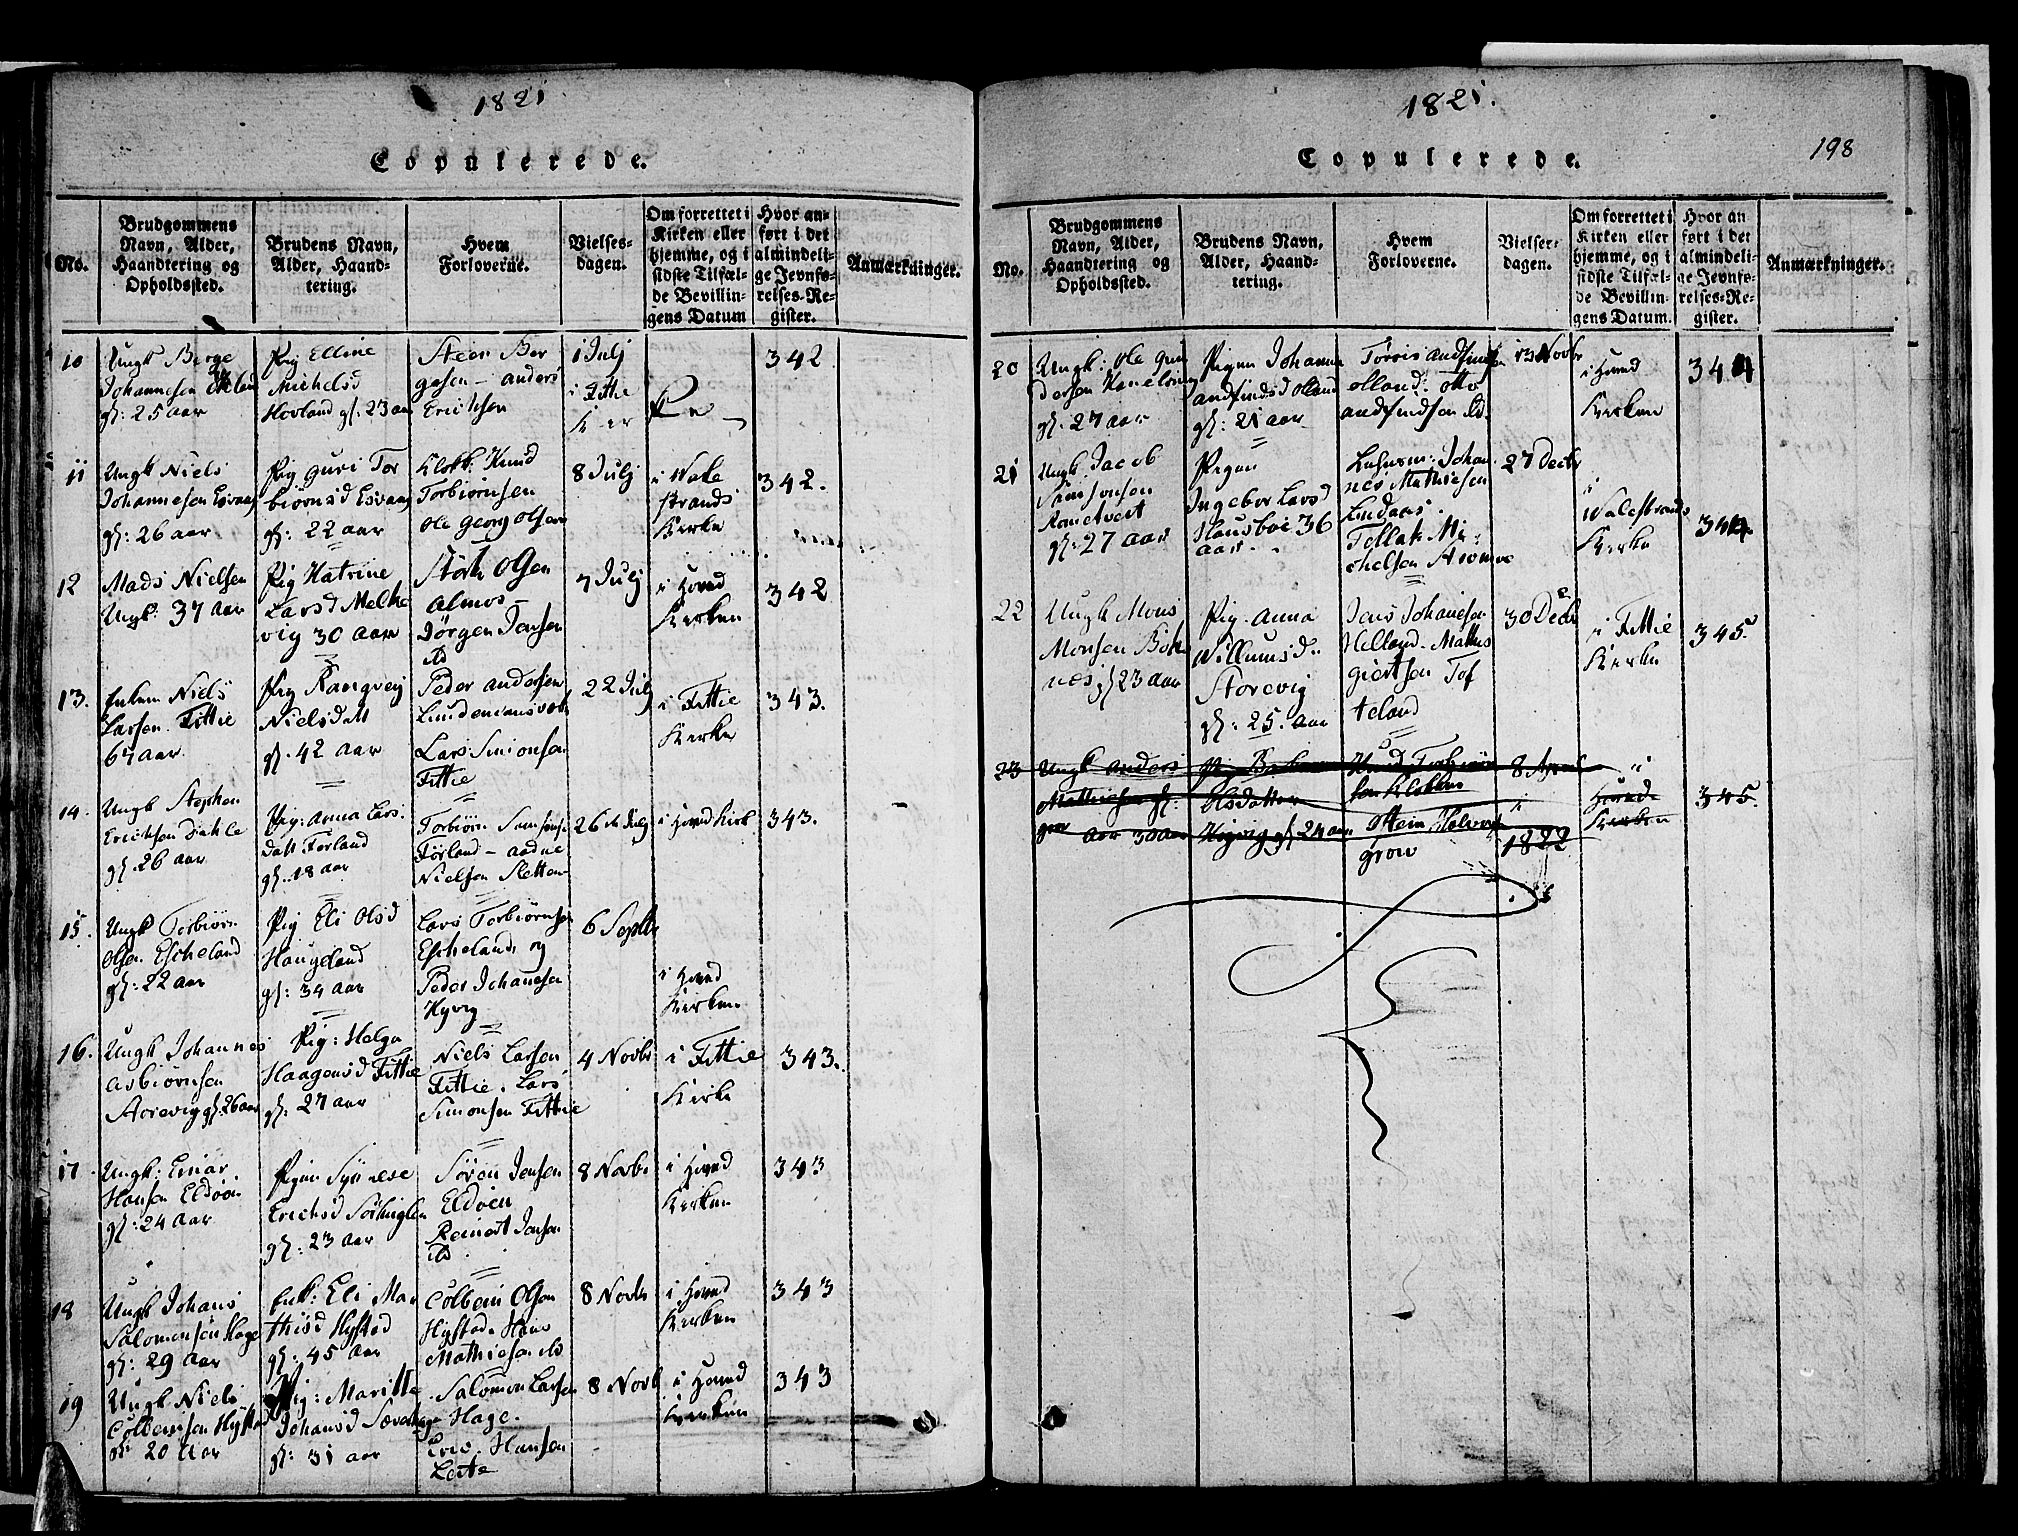 1821
Copulerede.
No.
Brudgommens
Navn, Alder,
Haandtering og
Opholdssted.
Brudens Navn,
Alder, Haand-
tering.
Hvem
Forloverne.
Vielses-
dagen.
Om forrettet i
Kirken eller
hjemme, og i
sidste Tilfæl-
de Bevillin-
gens Datum
Hvor an-
ført i det
almindeli-
ge Jevnfø-
relses-Re-
gister.
Anmærkninger.
10
Ungk Berge
Johannesen
gl: 25 aar
Pig Elline
Michelsd
Hovland gl: 23 aar
Steen Ber
gesen - anders
Erichsen
1 Julj
i Fittie
342
11
Ungk Niels
Johannesen Esvaag
gl: 26 aar
Pig guri Tor
biørnsd Esvaag
gl: 22 aar
Klokk: Knud
Torbiørnsen
Ole Georg Olsen
8 Julj
i Wale
strands
Kerke
342.
12
Mads Nielsen
Ungk: 37 aar
Pig Katrine
Larsd Melke
vig 30 aar
Størk Olsen
Almos -
Jørgen Jensen
ibd
7 Julj
i Hoved
Kerken
342
13.
Enkem Niels
Larsen Fittie
67 aar
Pig Rangvej
Nielsdatt
gl. 42 aar
Peder andersen
Lars Simonsen
Fittie
22 Julj
i Fittie
Kerke
343.
14.
Ungk Stephen
Erichsen Døhle
gl. 26 aar
Pig: Anna Lars
datt Førland
gl. 18 aar
Torbiørn Simonsen
Førland - aadne
Nielsen Sletten
26 de Julj
i Hoved Kirk
343.
15.
Ungk Torbiørn
Olsen Escheland
gl: 22 aar
Pig Eli Olsd
Haugeland
gl: 34 aar
Lars Torbiørnsen
Escheland, og
Peder Johanesen
Hyvig
6 Septbr
i Hoved
Kerken
16.
Ungk Johannes
asbiørnsen
Storevig gl: 26 aar
Pig: Helga
Haagensd Fittie
gl: 27 aar
Niels Larsen
Fittie. Lars
Simonsen Fittie
4 Novbr
i Fittie
Kirke
343.
17
Ungk: Einar
Hansen Eldøen
gl: 24 aar
Pigen Synnese
Erichsd
gl: 23 aar
Søren Jensen
Eldøen
Reinert Jensen
ibd
8 Novbr
i Hoved
Kerken
343
18
Ungk Johans
Salomonsen Hage
gl: 29 aar
Enk: Eli Ma
thisd Hystad
gl: 45 aar
Colbein Olsen
Hystad. Hans
Mathiesen ibd
8 Novbr
i Hoved
Kerken
343
19
Ungk Niels
Colbeinsen Hystad
gl: 20 Aar
Pig: Maritte
Johansd
gl: 31 aar
Salomon Larsen
Hage.
Hansen
Leite
8 Novb
i Hoved
Kerken
343
1821.
198
Copulerede.
No.
Brudgommens
Navn, Alder,
Haandtering og
Opholdssted.
Brudens Navn,
Alder, Haand-
tering.
Hvem
Forloverne.
Vielses-
dagen.
Om forrettet i
Kirken eller
hjemme, og i
sidste Tilfæl-
de Bevillin-
gens Datum.
Hvor an
ført i det
almindeli-
ge Jevnfø-
relses-Re-
gister.
Anmærkninger.
20
Ungk: Ole Gun
dersen
gl. 27 aar
Pigen Johanna
andfindsd Olland
gl: 21 aar
Tørris andfindsen
olland. otto
andfindsen ibd.
13 Novbr
i Hoved
Kerken
344
21
Ungk Jacob
Simonsen
Rometvert
gl: 27 aar
Pigen
Ingebor Larsd
36
aar.
Johan
nes Mathiesen
Lindaas.
Tollak Mi
chelsen
27 Decbr
i
Walestrands
Kerke
344.
22
Ungk Mons
Monsen
gl 23 aar
Pig. Anna
Willumsd.
Storevig
gl: 25. aar
Jens Johanesen
Helland. Mattis
giertsen Tof
teland
30 Decbr
i Fittie
Kerke
345.
23
Ungk Anders
Mathiesen gl:
aar 30 aar
Pig Barbara
Olsdatter
Kigvig gl 24 aar
Knud Torbiørn
sen Klokker
grow
8 April
i
1822
i
Hoved
Kerken
345.